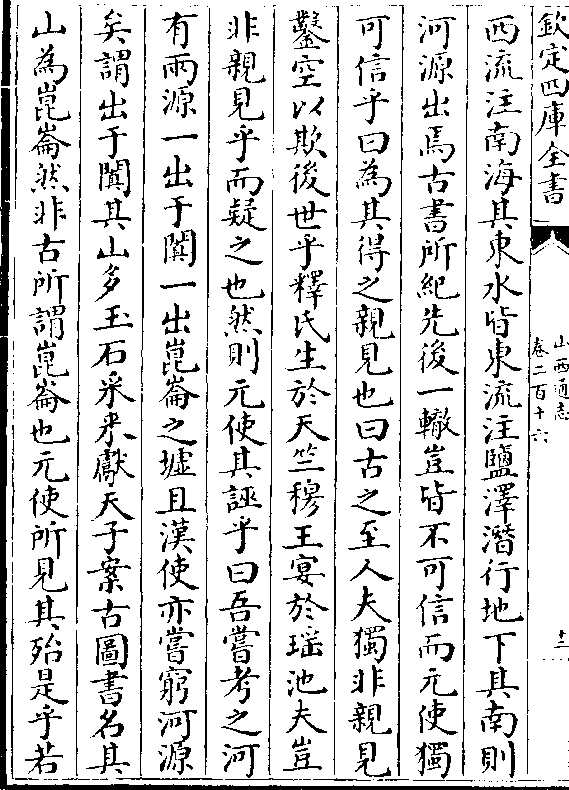 欽定四庫全書
山西通志
卷二百十六
十二
西流注南海其東水皆東流注鹽澤潛行地下其南則
河源出焉古書所紀先後一轍豈皆不可信而元使獨
可信乎曰為其得之親見也曰古之至人夫獨非親見
鑿空以欺後世乎釋氏生於天竺穆王宴於瑶池夫豈
非親見乎而疑之也然則元使其誣乎曰吾嘗考之河
有兩源一出于闐一出崑崙之墟且漢使亦嘗窮河源
矣謂出于闐其山多玉石采來獻天子案古圖書名其
山為崑崙然非古所謂崑崙也元使所見其殆是乎若